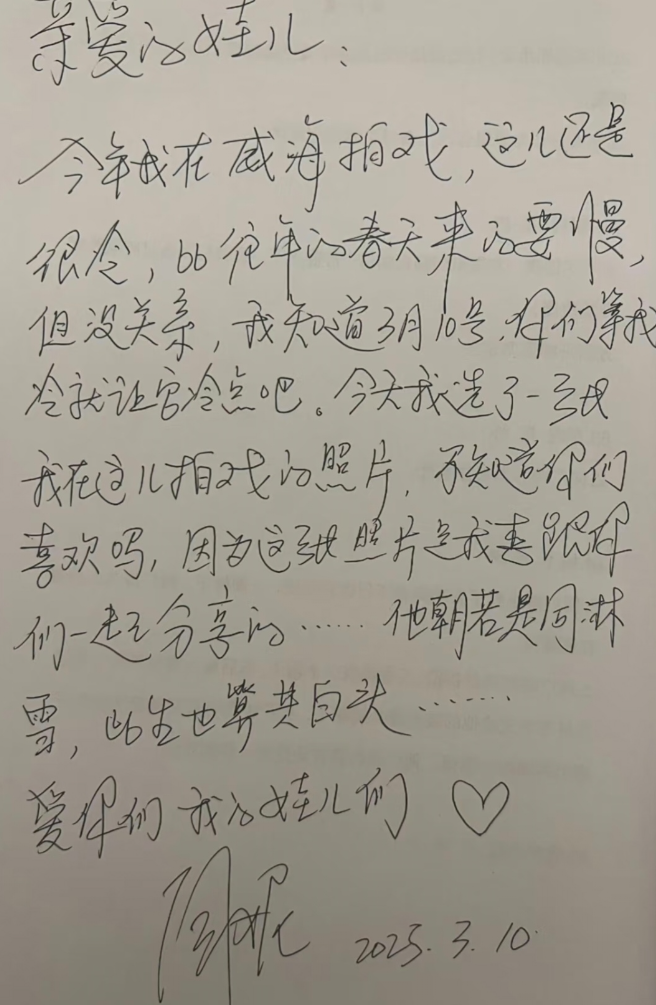 亲爱的娃儿：
今年我在威海拍戏，这儿还是
很冷，比往年的春天来的要慢，
但没关系，我知道3月10号，你们等我
冷就让它冷点吧。今天我选了一张
我在这儿拍戏的照片，不知道你们
喜欢吗，因为这张照片是我想跟你
们一起分享的……他朝若是同淋
雪，此生也算共白头……
爱你们 我的娃儿们 ♡
2025.3.10